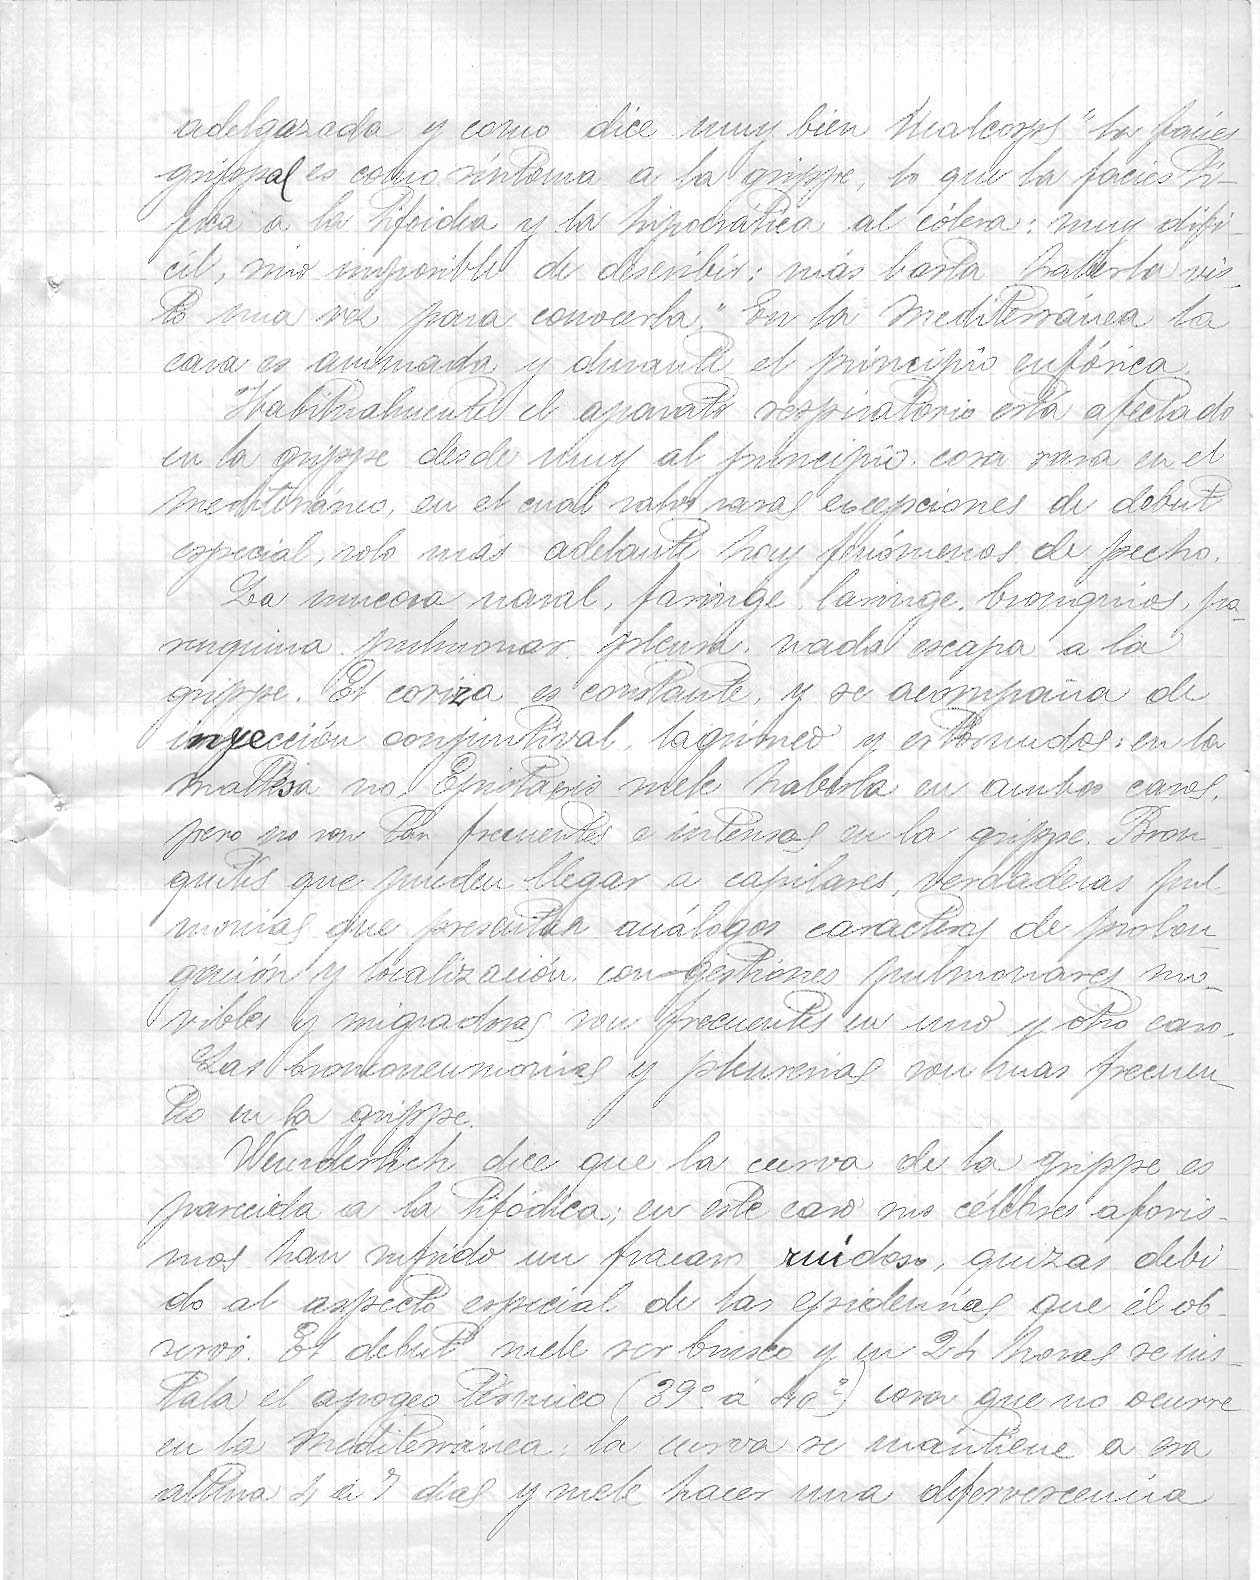 adelgazada y como dice muy bien Malcorps "la facies
grippal es como síntoma a la grippe, lo que la facies tí-
fica a la tifoidea y la hipocrática al cólera: muy difí-
cil, sino imposible de describir: más basta haberla vis-
to una vez para conocerla." En la mediterránea la
cara es animada y durante el principio eufórica.
Habitualmente el aparato respiratorio esta afectado
en la grippe desde muy al principio. cosa rara en el
mediterráneo, en el cual salvo raras excepciones de debut
especial, solo mas adelante hay fenómenos de pecho.
La mucosa nasal, faringe, laringe, bronquios, pa-
renquima pulmonar, pleura, nada escapa a la
grippe. El coriza es constante, y se acompaña de
inyección conjuntival, lagrimeo y estornudos: en la
maltesa no. Epistaxis suele haberla en ambos casos,
pero no son tan frecuentes e intensas en la grippe. Bron-
quitis que pueden llegar a capilares, verdaderas pul-
monias que presentan análogos caracteres de prolon-
gación y localización, con gestiones pulmonares mo-
vibles y migradoras son frecuentes en uno y otro caso.
Las bronconeumonias y pleuresias son mas frecuen-
tes en la grippe.
Wunderlich dice que la curva de la grippe es
parecida a la tifódica; en este caso sus célebres aforis-
mos han sufrido un fracaso ruidoso, quizas debi-
do al aspecto especial de las epidemias que él ob-
servó. El debut suele ser brusco y en 24 horas se ins-
tala el apogeo térmico (39º á 40º) cosa que no ocurre
en la mediterránea: la curva se mantiene a esa
altura 4 á 7 días y suele hacer una defervescencia